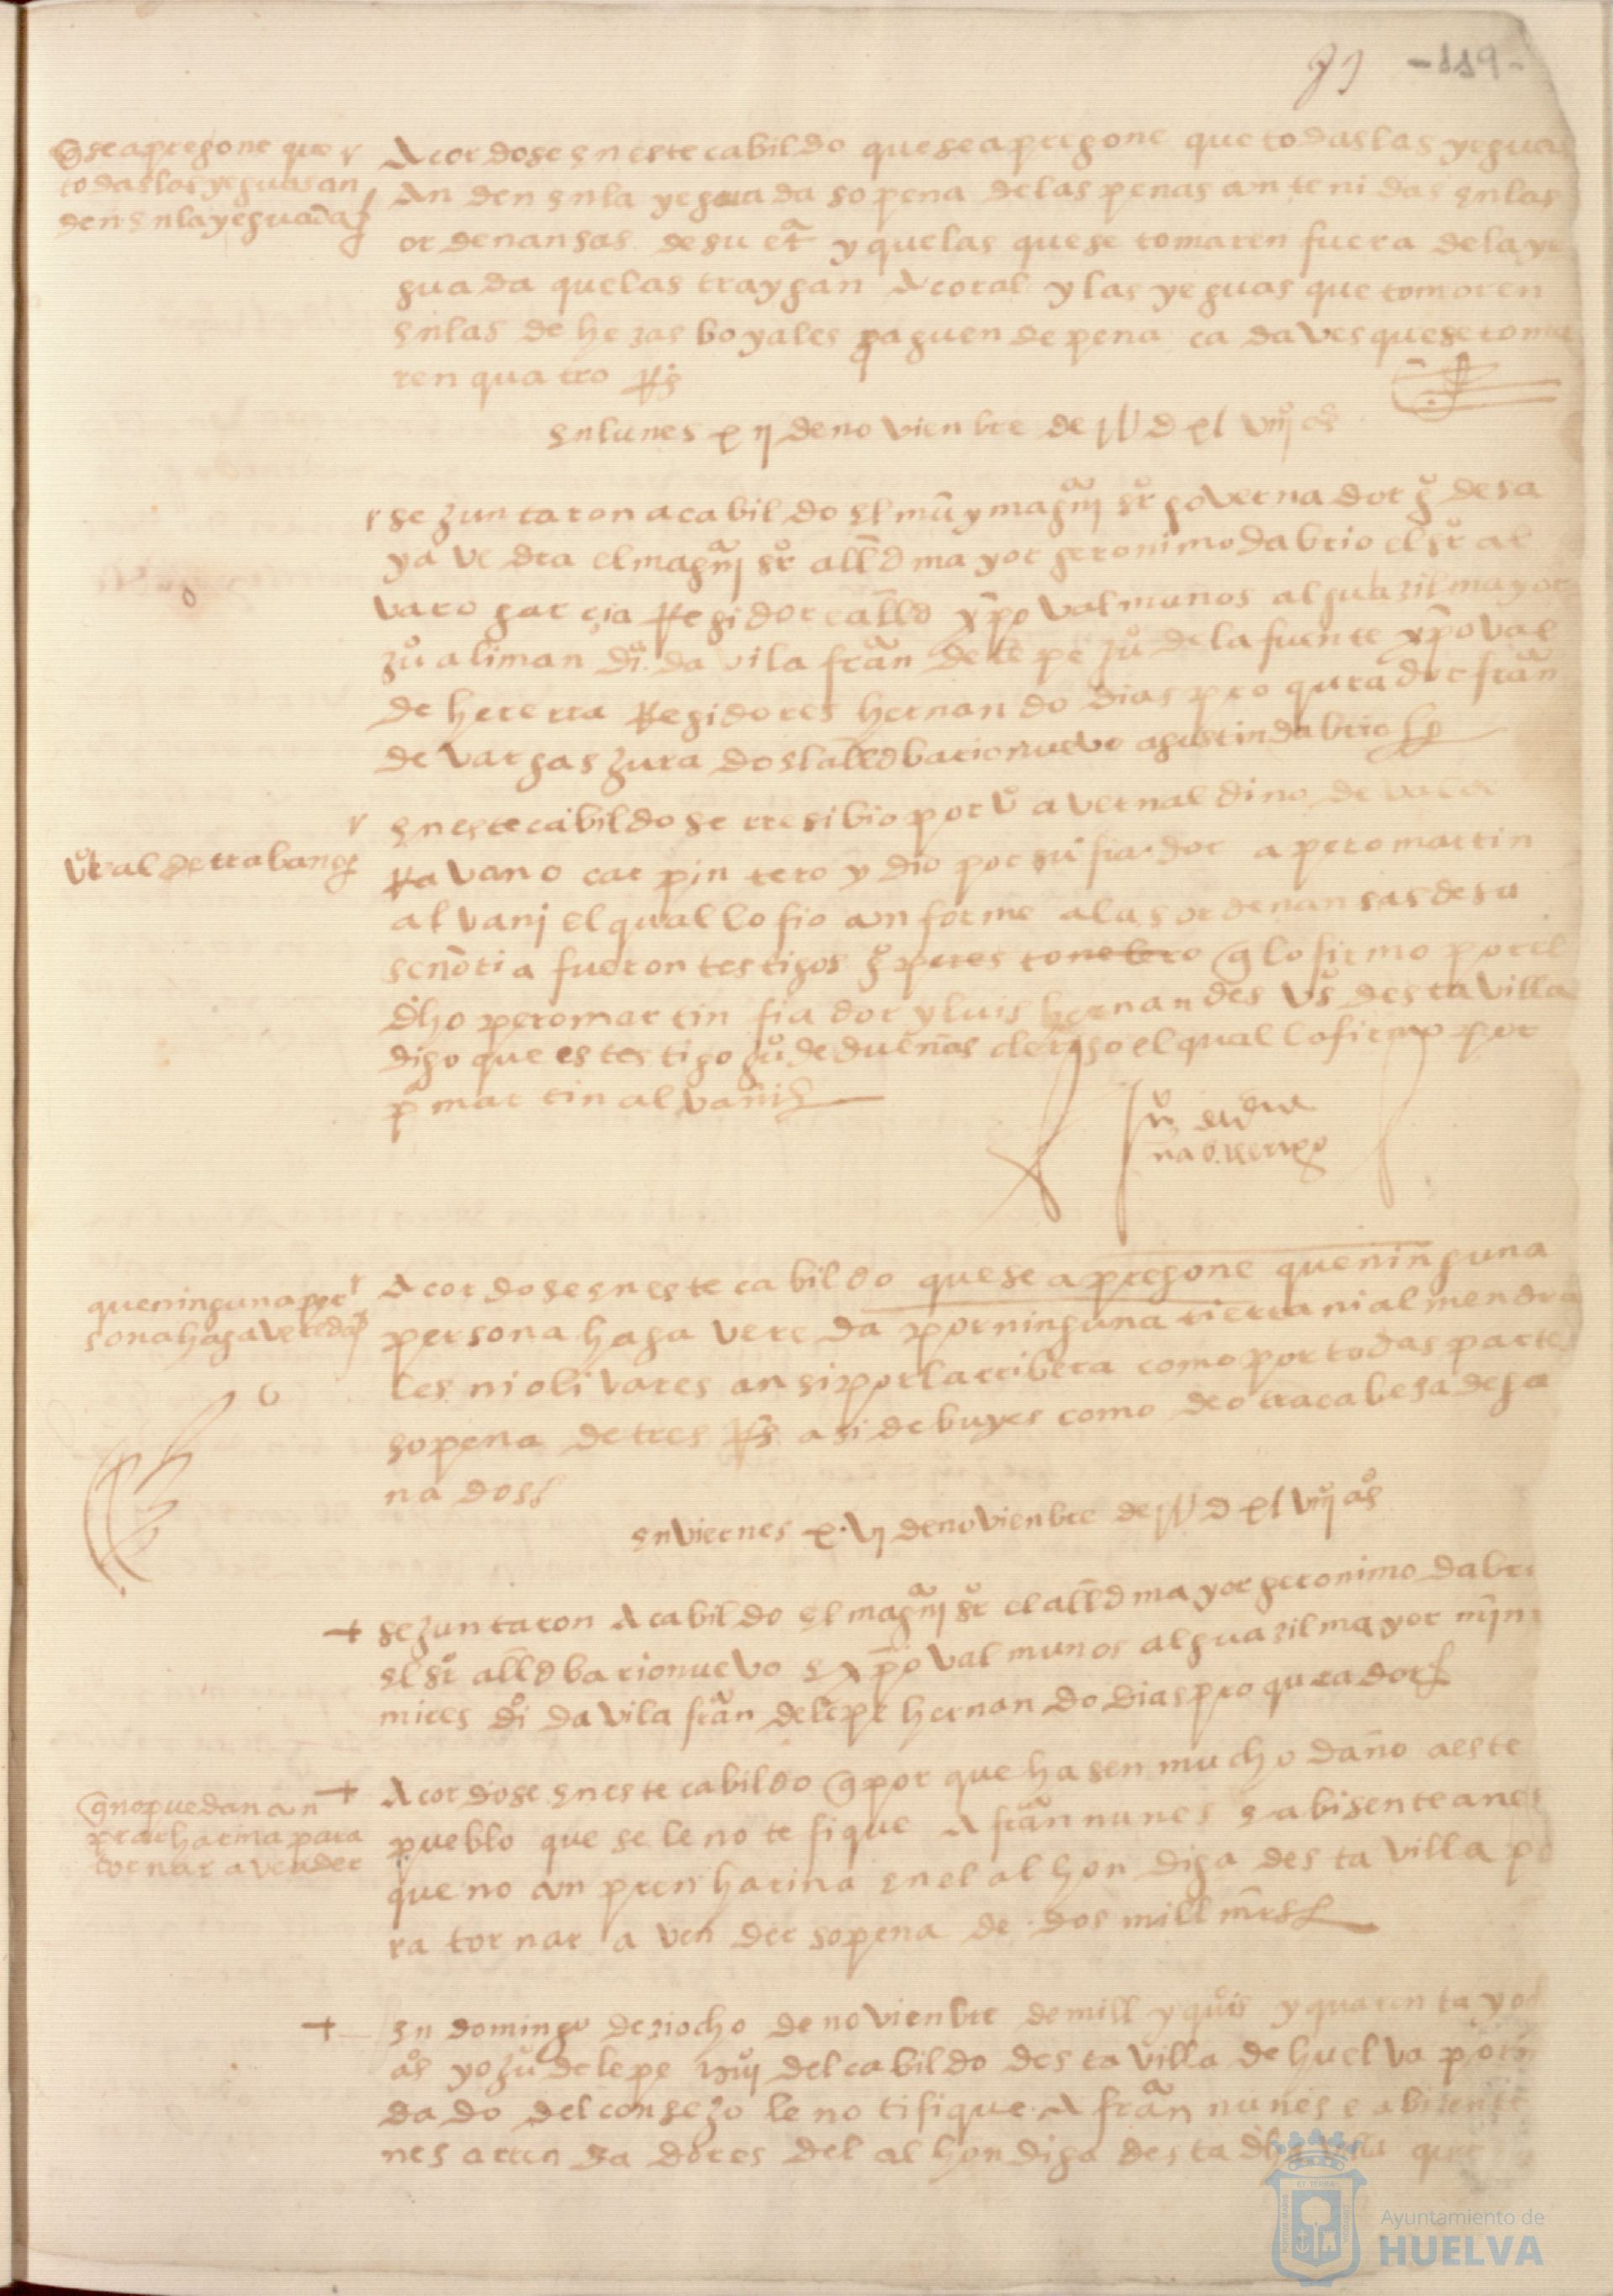 -119-
q̃ se apregone que
todas las yeguas an
den en la yeguada
Acordose en este cabildo que se apregone que todas las yegua
Anden en la yeguada so pena de las penas contenidas en las
ordenansas de su sª y que las que se tomaren fuera de la ye
guada que las traygan A coral y las yeguas que tomoren
en las dehezas boyales paguen de pena cada ves que se toma
ren quatro Rs
en lunes xij de novienbre de jU d xl viijº aºs
se juntaron a cabildo el muy magco sr governador gº de sa
yavedra el magco sr alld mayor geronimo dabrio el sr al
varo garçia Regidor e alld xpoval munos alguazil mayor
juº aliman diº davila fran de lepe juº de la fuente xpoval
de hererra Regidores hernando dias procurador fran
de vargas jurados el alld barionuevo agustin dabrio
vº val de rrabano
en este cabildo se rresibio por vº a vernaldino de valde
Ravano carpintero y dio por su fiador a pero martin
alvanj el qual lo fio conforme a las ordenansas de su
señoria fueron testigos gº peres tonelero q̃ lo firmo por el
dho pero martin fiador y luis hernandes vº desta villa
digo que es testigo juº de dueñas clerigo el qual lo firmo por
pº martin alvañi
juº de due
ñas clerigo
que ninguna per
sona haga vereda
Acordose en este cabildo que se apregone que ninguna
persona haga vereda por ninguna tierra ni almendra
les ni olivares ansi por la rribera como por todas partes
so pena de tres Rs asi de buyes como de otra cabesa de ga
nados
en viernes xvj de novienbre de jU d xl viijº aºs
+ se juntaron A cabildo el magco sr el alld mayor geronimo dabri
el sr alld barionuevo e xpoval munos alguazil mayor min
mires diº davila fran de lepe hernando dias procurador
q̃ no puedan con
prar harina para
tornar a vender
+ Acordose en este cabildo q̃ por que hasen mucho daño a este
pueblo que se le notefique A fran nunes e a bisente anes
que no conpren harina en el alhondiga desta villa pa
ra tornar a vender so pena de dos mill mrs
+ en domingo deziocho de novienbre de mill y quis y quarenta y och
aºs yo juº de lepe del cabildo desta villa de huelva por m
dado del consejo le notifique A fran nunes e a bizente
nes arrendadores del alhondiga desta dha villa que
Ayuntamiento de
HUELVA